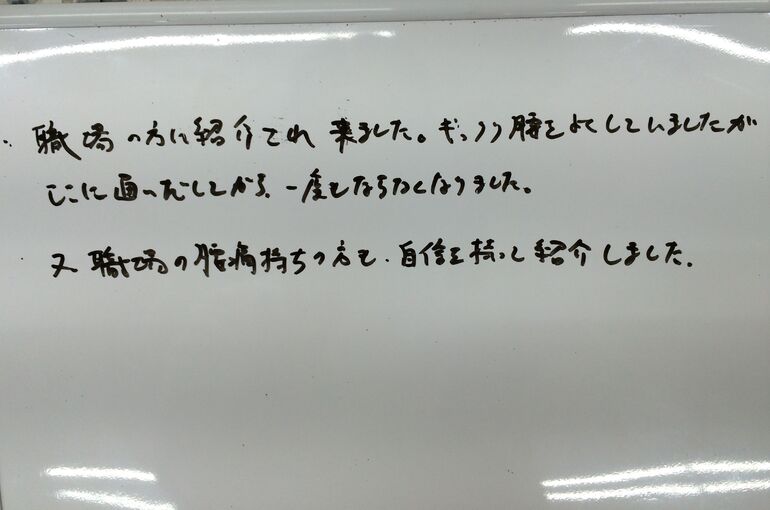 ・職場の方に紹介され来ました。ギックリ腰をよくしていましたが
ここに通いだしてから、一度もならなくなりました。
又職場の腰痛持ちの方も、自信を持って紹介しました。